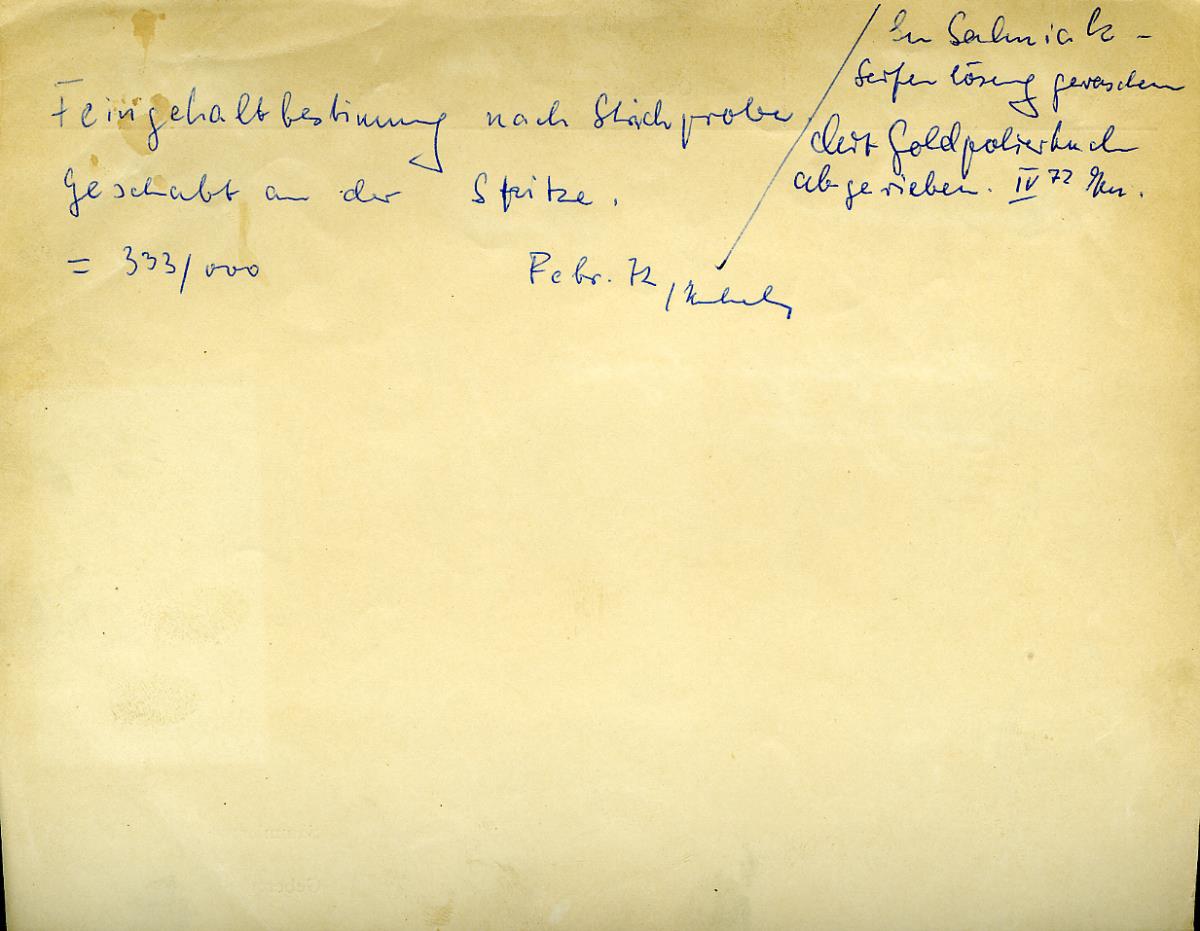 Feingehaltbestimmung nach Strichprobe
Geschabt an der Spitze.
= 333/000
Febr. 72
In Salmiak -
Seifenlösung gewaschen
Mit Goldpoliertuch
abgerieben. IV 72